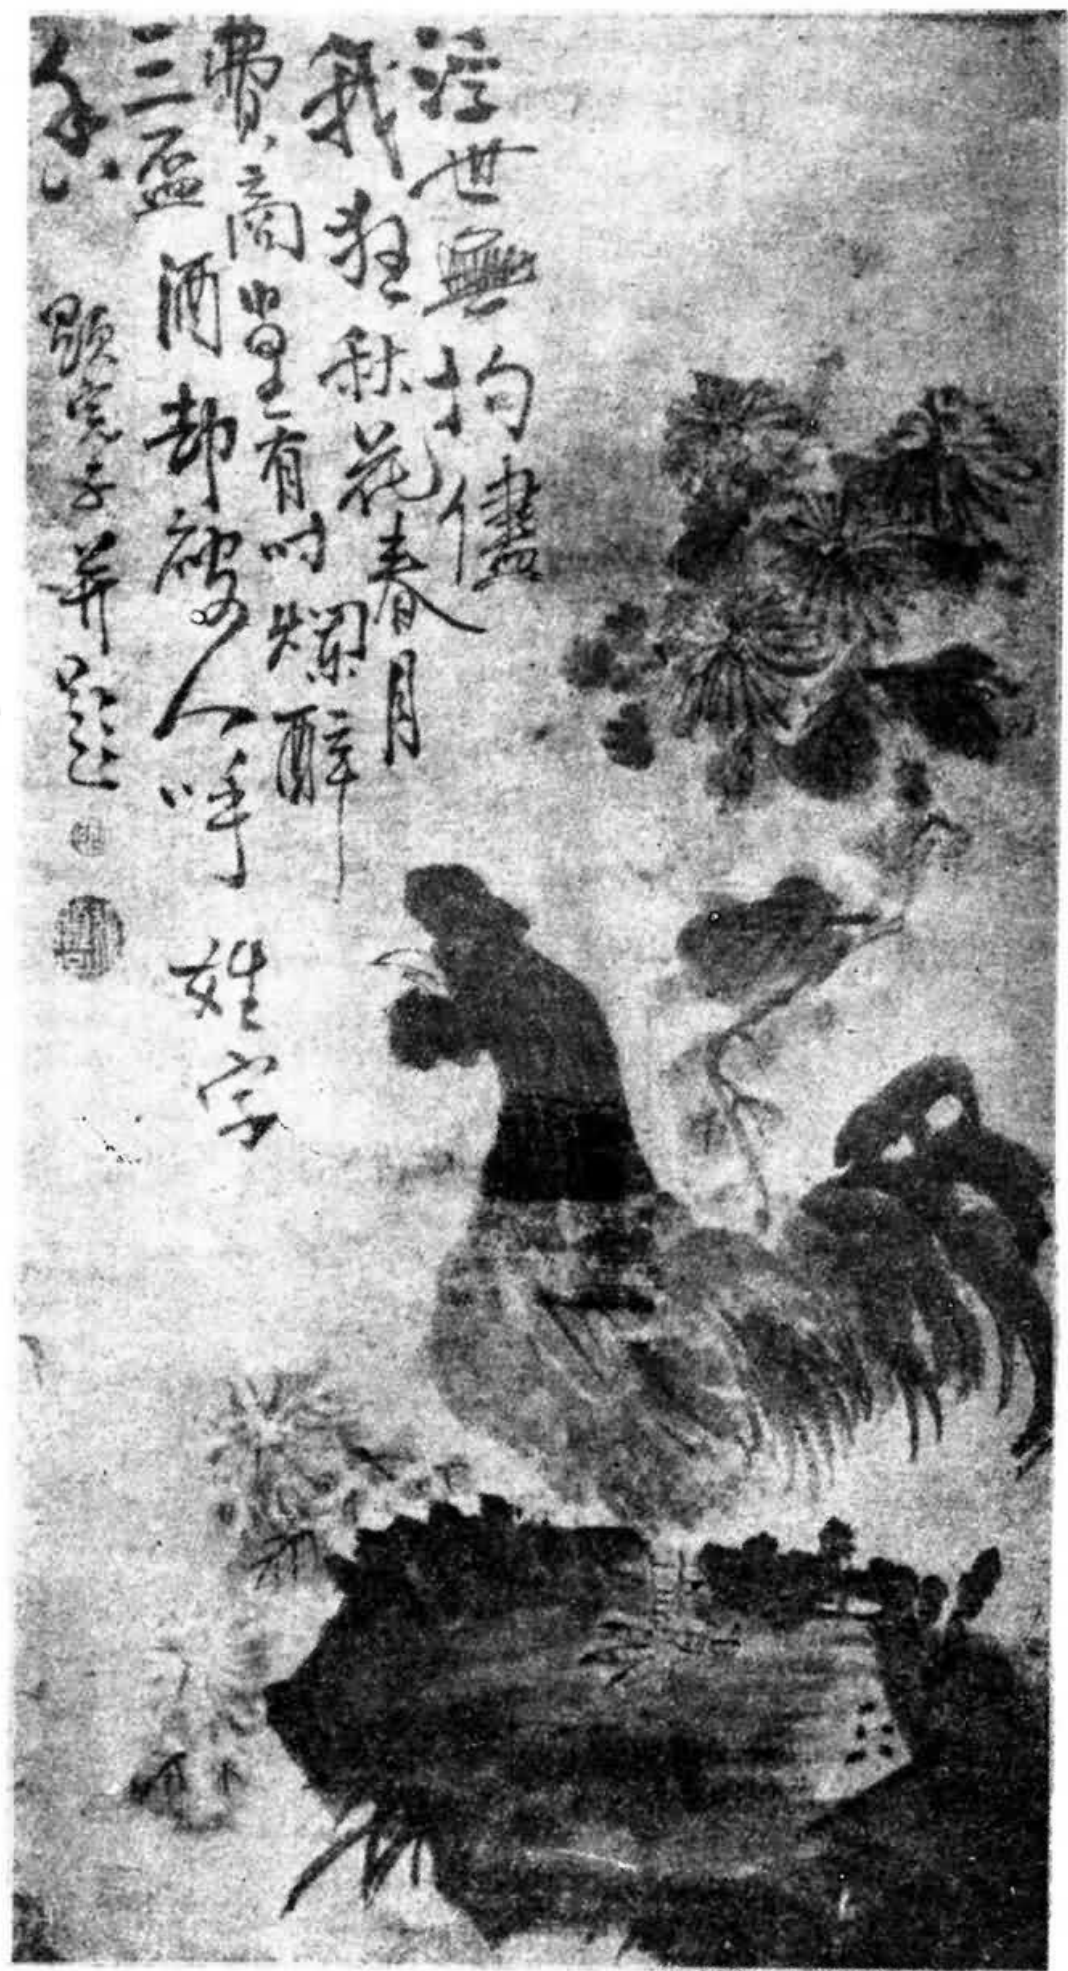 浮世無拘儘
我狂秋花春月
費商量有時爛醉
三盃酒却被人呼姓字
香
子並題